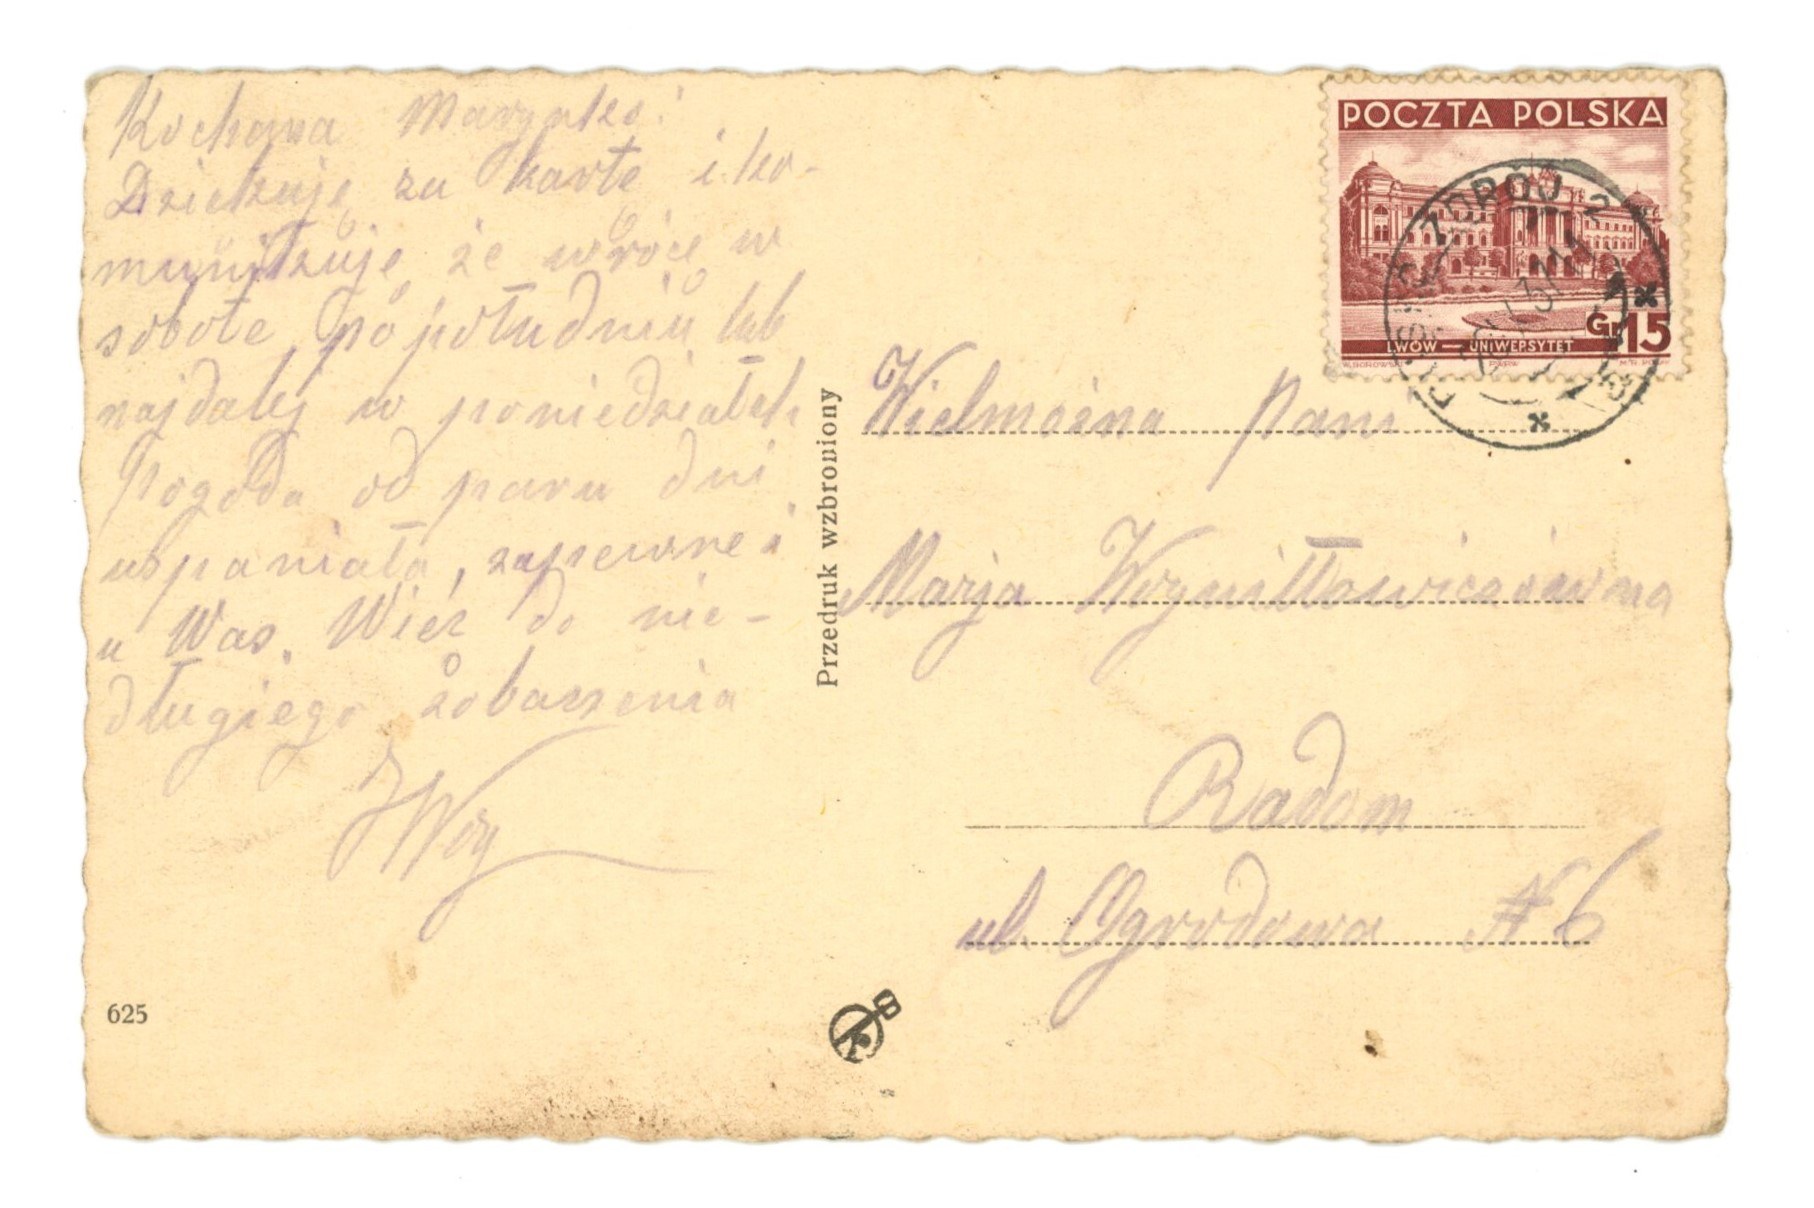 Kochana Marynko!
Dziękuję za kartę i ko-
munikuję, że wrócę w
sobotę po południu lub
najdalej w poniedziałek
Pogoda od paru dni
wspaniała, zapewne i
u Was. Więc do nie-
długiego zobaczenia
625
Przedruk wzbroniony
POCZTA POLSKA
Gr 15
LWÓW — UNIWERSYTET
ZDRÓJ 2
Wielmożna Pani
Marja
Radom
ul. Ogrodowa № 6